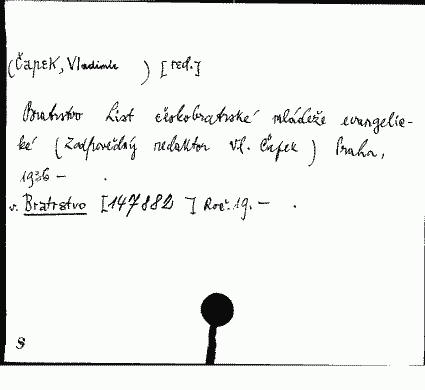 (Čapek, Vladimír ) [red.]
Bratrstvo List českobratrské mládeže evangelic-
ké (Zodpovědný redaktor Vl. Čapek) Praha,
1936 – .
v. Bratrstvo [147882 ] Roč. 19. – .
S